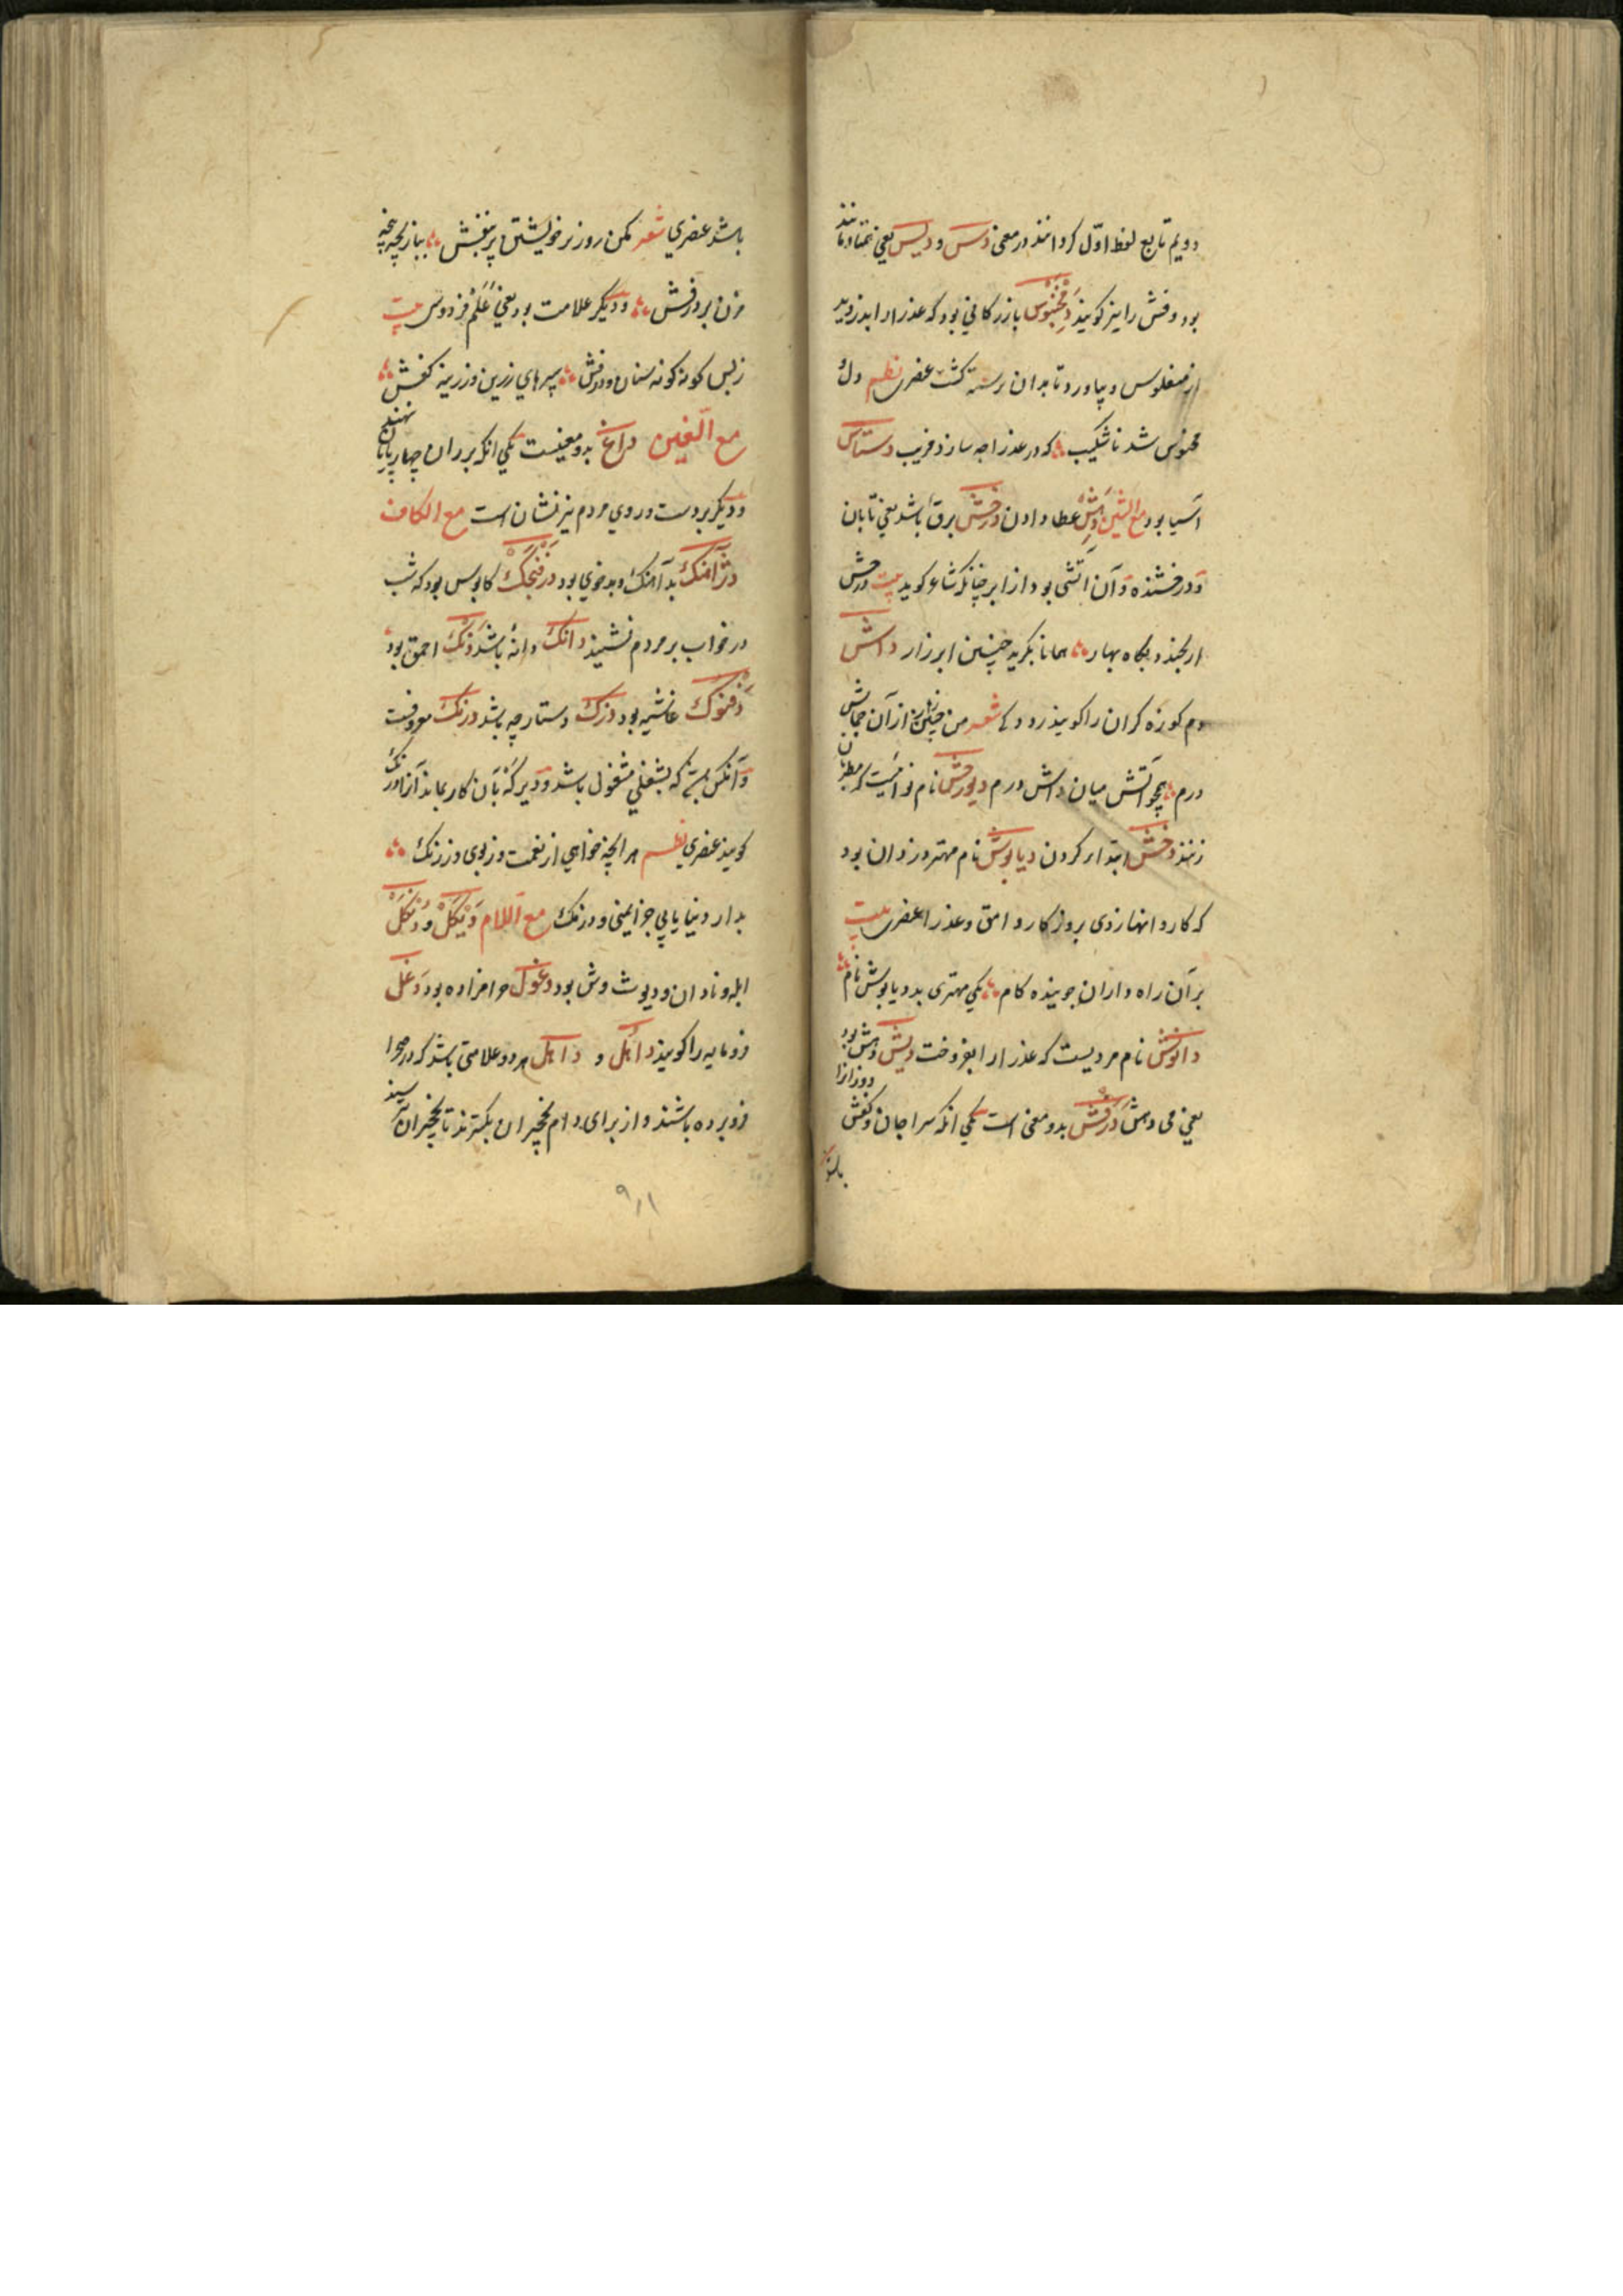 دویم تابع لفظ اوّل کردانند در معنی دس و دیس یعنی همتا و مانند
بود وفش را نیز کویند دِمْخَنْوُس بازرکانی بود که عذرا را بدزدید
از منقلوس و بیاورد تا بدان رسته کشت عنصری نظم دل
مخنوس شد ناشکیب که در عذرا چه سازد فریب دستاس
آسیا بود مع الشین دِهِش عطا دادن درخش برق باشد یعنی تابان
و درفشنده و آن آتشی بود از ابر چنانکه شاعر کوید بیت درخش
ار بخندد بکاه بهار همانا بکرید چنین ابر زار داش
دم کوزه کران را کویند رودکی شعر من چنین زار از آن جماش
درم همچو آتش میان داش درم دیورخش نام نوائیست که مطربان
زنند دخش ابتدا کردن دیابوش نام مهتر دزدان بود
که کاروانها زدی بروزکار وامق و عذرا عنصری بیت
بر آن راه داران جوینده کام یکی مهتری بد دیابوش نام
دانوش نام مردیست که عذرا را بفروخت دیش دهش بود
یعنی می دهش دَرَفش بدو معنی است یکی آنکه سراجان و کفش دوزانرا
باشد
باشد عنصری شعر مکن روز بر خویشتن بر بنفش ببازیچه پنجه
مزن بر درفش و دیکر علامت بود یعنی عَلَم فردوسی بیت
ز بس کونه کونه سنان و درفش سپرهای زرین و زرینه کفش
مع الغین داغ بدو معنیست یکی آنکه بر ران چهارپایان نهند
و دیکر بر دست و روی مردم نیز نشان است مع الکاف
دژآهنک بد آهنک و بدخوی بود دَرَفَنْجَکْ کابوس بود که شب
در خواب بر مردم نشیند دانک دانه باشد دَنک احمق بود
دفنوک غاشیه بود دزک دستارچه باشد درنک معروفست
و آنکس نیز که بشغلی مشغول باشد و دیر که بآن کار بماند آنرا درنک
کویند عنصری نظم هر آنچه خواهی از نعمت و ز بوی و ز رنک
بدار دنیا یابی جز ایمنی و درنک مع اللام دَیْکَلْ و دَنْکَلْ
ابله و نادان و دیوث وش بود دغول حرامزاده بود دَغَل
فرومایه را کویند داهل و داهل هر دو علامتی باشد که در صحرا
فرو برده باشند و از برای دام نخچیران بکسترند تا نخچیران
۹۱